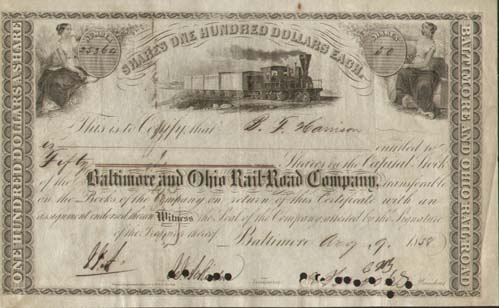 SHARES ONE HUNDRED DOLLARS EACH.
SHARES
50
ONE HUNDRED DOLLARS A SHARE
BALTIMORE AND OHIO RAILROAD
This is to Certify, that Harrison
is entitled to
Fifty Shares in the Capital Stock
of the Baltimore and Ohio Rail-Road Company, transferable
on the Books of the Company on return of this Certificate with an
assignment endorsed thereon Witness the Seal of the Company, attested by the Signature
of the Treasurer thereof. Baltimore Aug 9. 1858